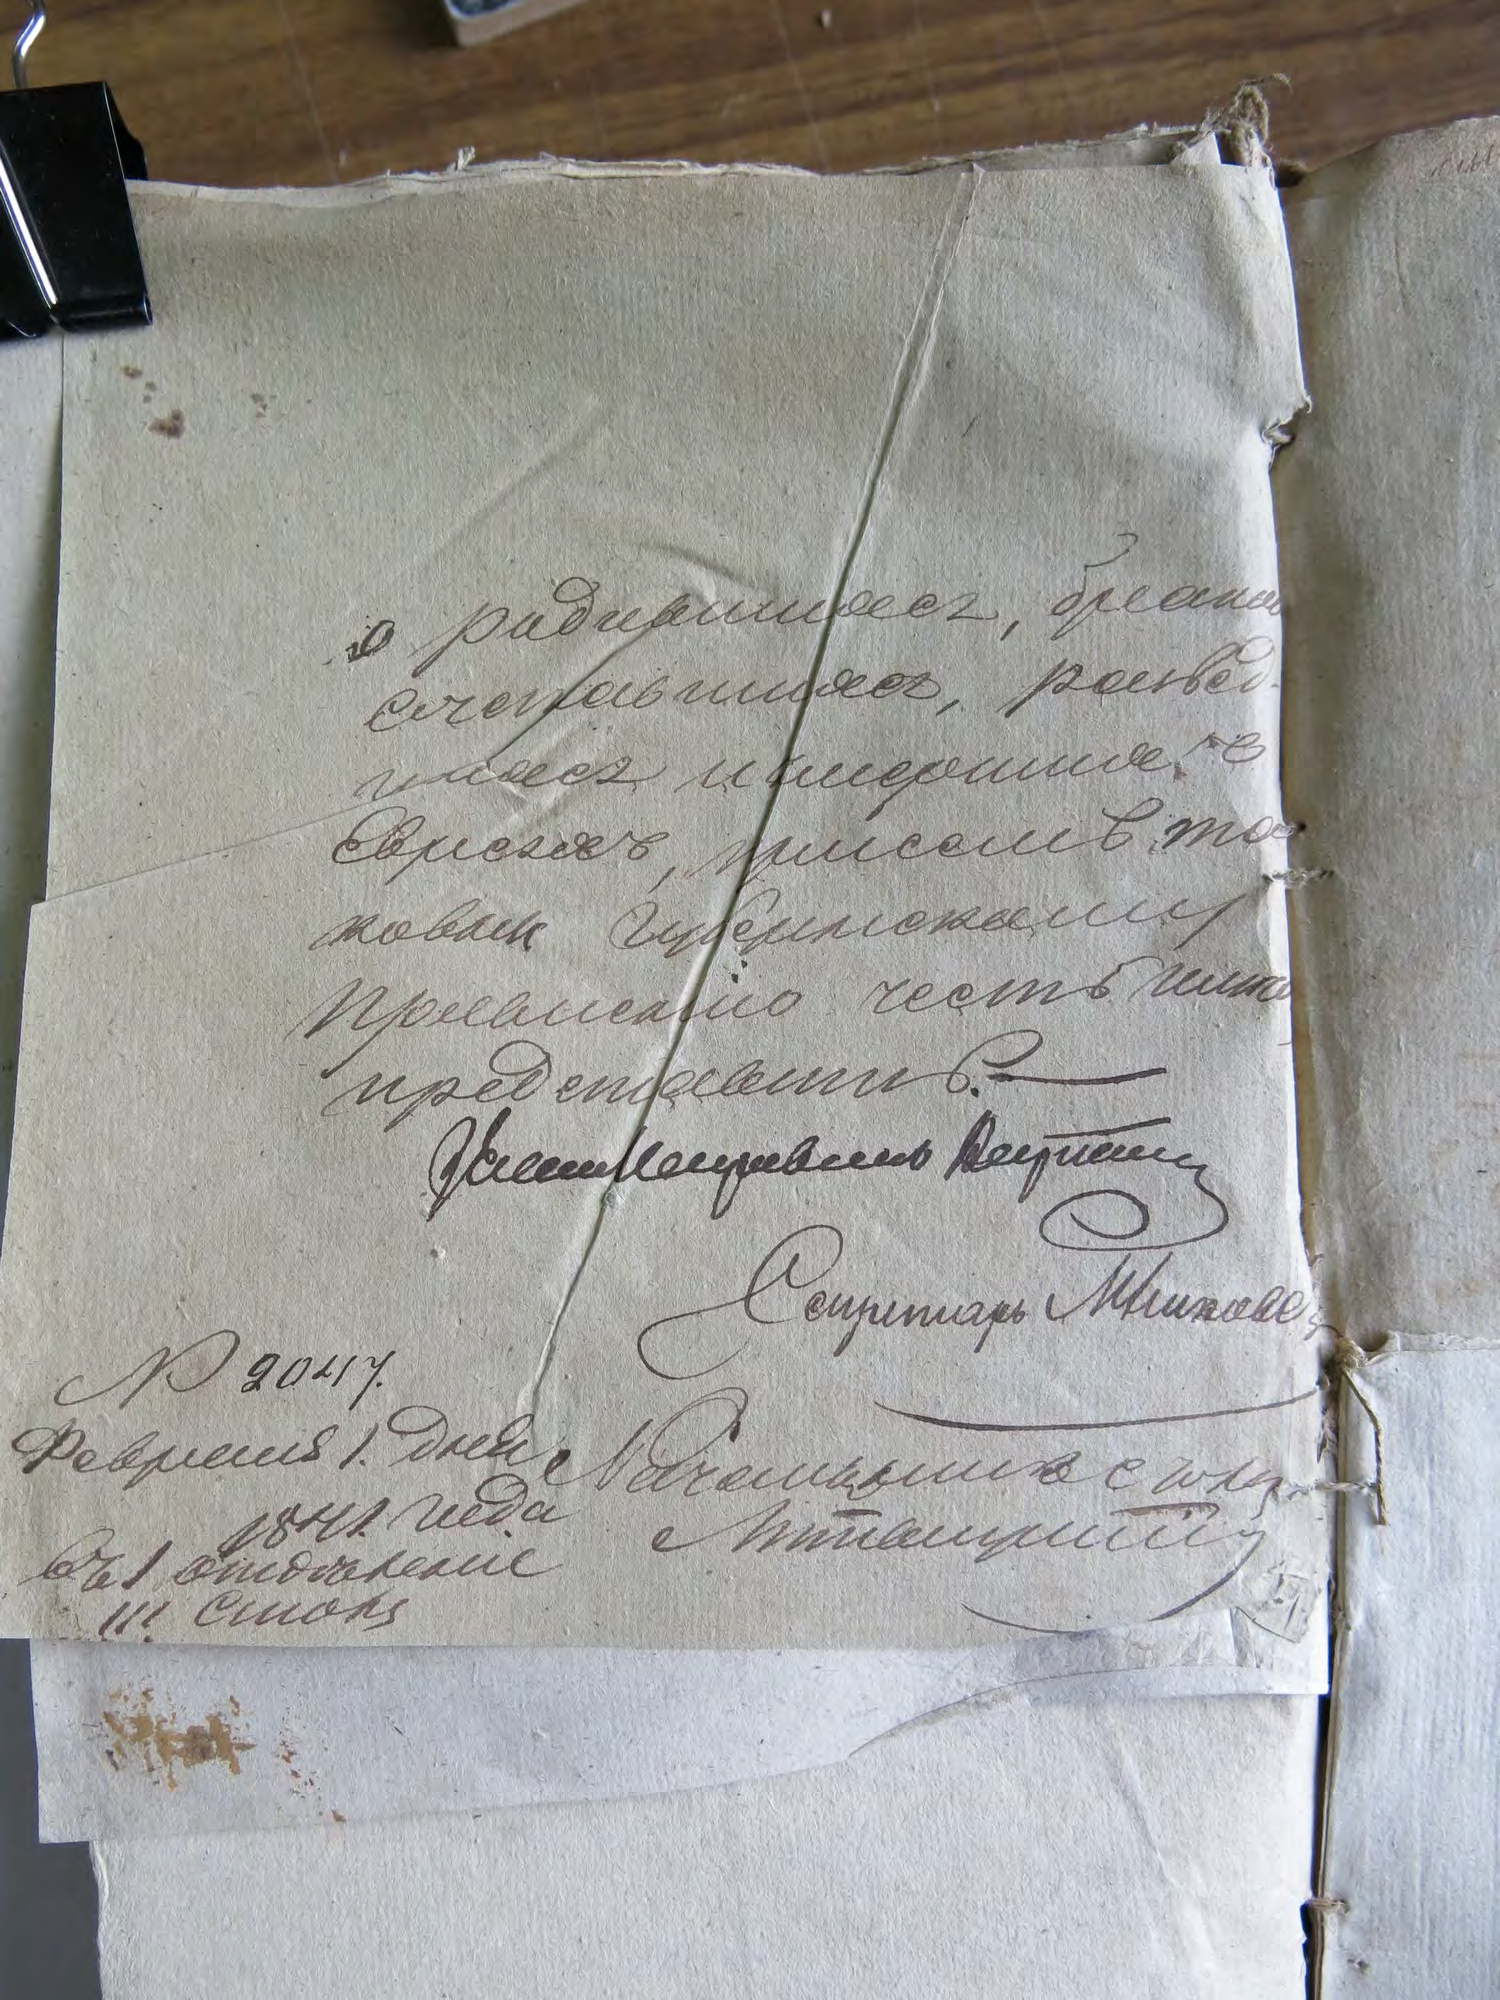 о родившихся, брако
сочетавшихся, развед-
шихся и умерших
Евреяхъ, при семъ та
ковыя Губернскому
Правленію честь имѣ
представить.
Секретарь
№ 2047.
Февраля 1. дня
1841 года
въ 1 отдѣленіе
III Столъ
Начальникъ стола